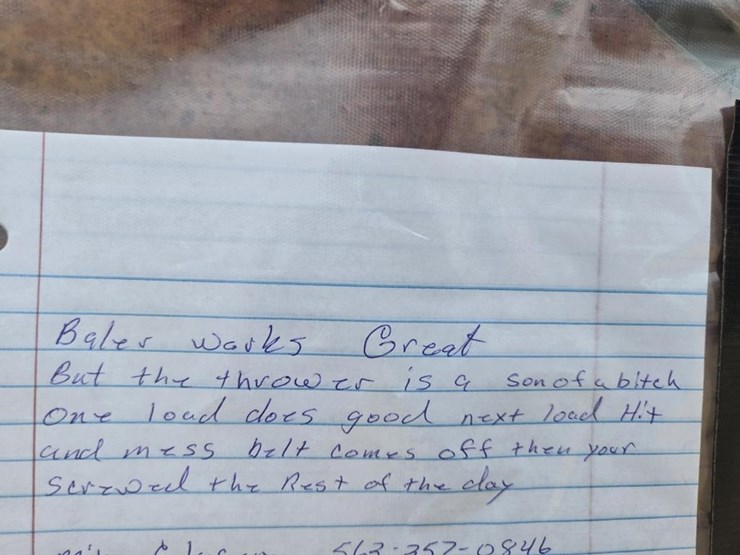 Baler works Great
But the thrower is a son of a bitch
One load does good next load Hit
and mess belt comes off then your
screwed the Rest of the day
563-357-0846